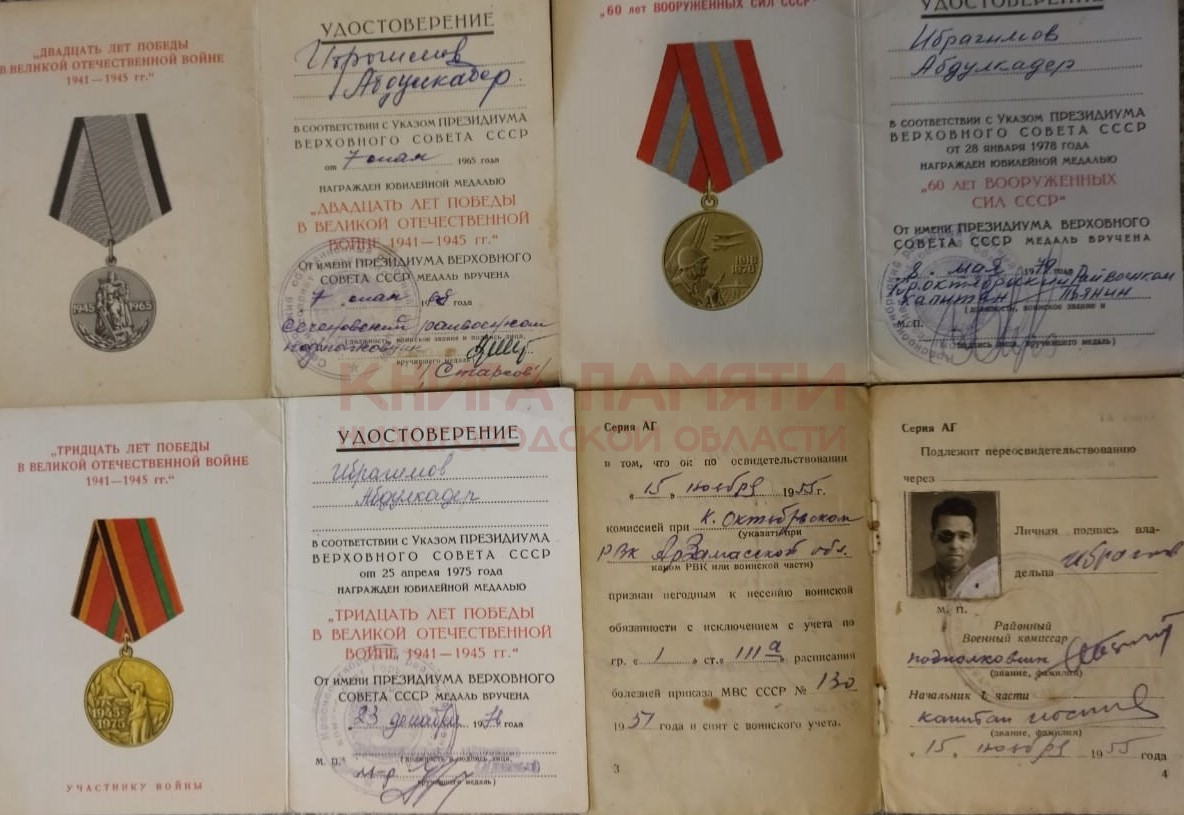 „ДВАДЦАТЬ ЛЕТ ПОБЕДЫ
В ВЕЛИКОЙ ОТЕЧЕСТВЕННОЙ ВОЙНЕ
1941—1945 гг.“
1945 1965
УДОСТОВЕРЕНИЕ
Абдулкадер
В СООТВЕТСТВИИ С УКАЗОМ ПРЕЗИДИУМА
ВЕРХОВНОГО СОВЕТА СССР
от 7 мая 1965 года
НАГРАЖДЕН ЮБИЛЕЙНОЙ МЕДАЛЬЮ
„ДВАДЦАТЬ ЛЕТ ПОБЕДЫ
В ВЕЛИКОЙ ОТЕЧЕСТВЕННОЙ
ВОЙНЕ 1941—1945 гг.“
ОТ ИМЕНИ ПРЕЗИДИУМА ВЕРХОВНОГО
СОВЕТА СССР МЕДАЛЬ ВРУЧЕНА
7 мая года
райвоенком
подполковник
(должность, воинское звание и подпись лица,
вручившего медаль)
„60 лет ВООРУЖЕННЫХ СИЛ СССР“
1918
1978
УДОСТОВЕРЕНИЕ
Ибрагимов
Абдулкадер
В СООТВЕТСТВИИ С УКАЗОМ ПРЕЗИДИУМА
ВЕРХОВНОГО СОВЕТА СССР
ОТ 28 ЯНВАРЯ 1978 ГОДА
НАГРАЖДЕН ЮБИЛЕЙНОЙ МЕДАЛЬЮ
„60 ЛЕТ ВООРУЖЕННЫХ
СИЛ СССР“
ОТ ИМЕНИ ПРЕЗИДИУМА ВЕРХОВНОГО
СОВЕТА СССР МЕДАЛЬ ВРУЧЕНА
8 мая 1979 года
райвоенком
капитан
(должность, воинское звание и
М. П.
подпись лица, вручившего медаль)
КНИГА ПАМЯТИ
НИЖЕГОРОДСКОЙ ОБЛАСТИ
„ТРИДЦАТЬ ЛЕТ ПОБЕДЫ
В ВЕЛИКОЙ ОТЕЧЕСТВЕННОЙ ВОЙНЕ
1941—1945 гг.“
1945
1975
УЧАСТНИКУ ВОЙНЫ
УДОСТОВЕРЕНИЕ
Ибрагимов
Абдулкадер
В СООТВЕТСТВИИ С УКАЗОМ ПРЕЗИДИУМА
ВЕРХОВНОГО СОВЕТА СССР
от 25 апреля 1975 года
НАГРАЖДЕН ЮБИЛЕЙНОЙ МЕДАЛЬЮ
„ТРИДЦАТЬ ЛЕТ ПОБЕДЫ
В ВЕЛИКОЙ ОТЕЧЕСТВЕННОЙ
ВОЙНЕ 1941—1945 гг.“
ОТ ИМЕНИ ПРЕЗИДИУМА ВЕРХОВНОГО
СОВЕТА СССР МЕДАЛЬ ВРУЧЕНА
23 декабря 1976 года
М. П.
вручившего медаль)
Серия АГ
в том, что он по освидетельствовании
« 15 » ноября 1955 г.
комиссией при К. Октябрьском
(указать при
РВК Арзамасской обл.
каком РВК или воинской части)
признан негодным к несению воинской
обязанности с исключением с учета по
гр. « 1 » ст. « III а расписания
болезней приказа МВС СССР № 130
1951 года и снят с воинского учета.
3
Серия АГ
Подлежит переосвидетельствованию
через
Личная подпись вла-
дельца
М. П.
Районный
Военный комиссар
подполковник
(звание, фамилия)
Начальник 1 части
капитан
(звание, фамилия)
« 15 » ноября 1955 года
4